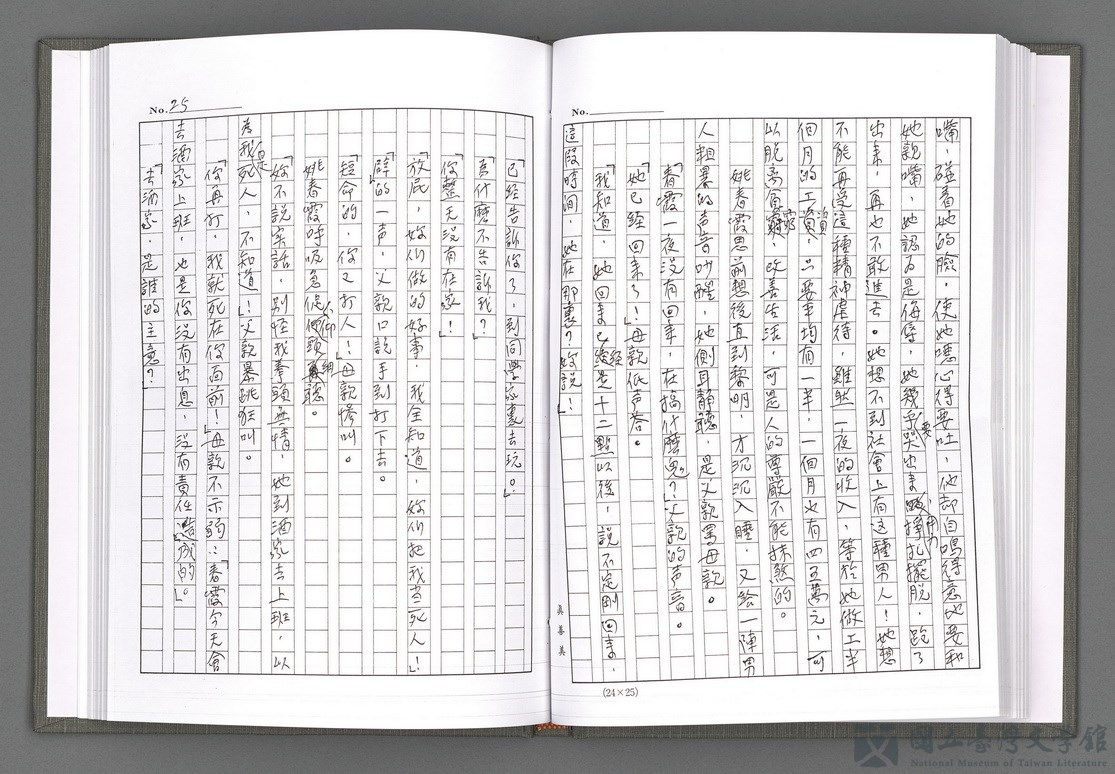 No.
嘴，碰着她的臉，使她噁心得要吐，他却自鳴得意地要和
她親嘴，她認為是侮辱，她幾乎要哭出來，用力掙扎擺脫，跑了
出來，再也不敢進去。她想不到社會上有這種男人！她想
不能再受這種精神虐待，雖然一夜的收入，等於她做工半
個月的工資，只要平均有一半，一個月也有四五萬元，可
以脫離貧窮，改善生活，可是人的尊嚴不能抹煞的。
姚春霞思前想後直到黎明，才沉沉入睡，又給一陣男
人粗暴的声音吵醒，她側耳靜聽，是父親罵母親。
「春霞一夜没有回來，在搞什麼鬼？」父親的声音。
「她已經回來了！」母親低声答。
「我知道，她回來已經是十二點以後，說不定剛回來，
這段時間，她在那裏？妳說！」
眞善美
(24×25)
No. 25
「已經告訴你了，到同學家裏去玩。」
「為什麼不告訴我？」
「你整天没有在家！」
「放屁，妳们做的好事，我全知道，妳们把我当死人！」
「辟」的一声，父親口說手到打下去。
「短命的，你又打人！」母親慘叫。
姚春霞呼吸急促，仰頭細聽。
「妳不說实話，别怪我拳頭無情，她到酒家去上班，以
為我是死人，不知道！」父親暴跳狂叫。
「你再打，我就死在你面前！」母親不示弱：「春霞今天會
去酒家上班，也是你没有出息，没有責任造成的」。
「去酒家，是誰的主意？」
國立臺灣文學館
National Museum of Taiwan Literature